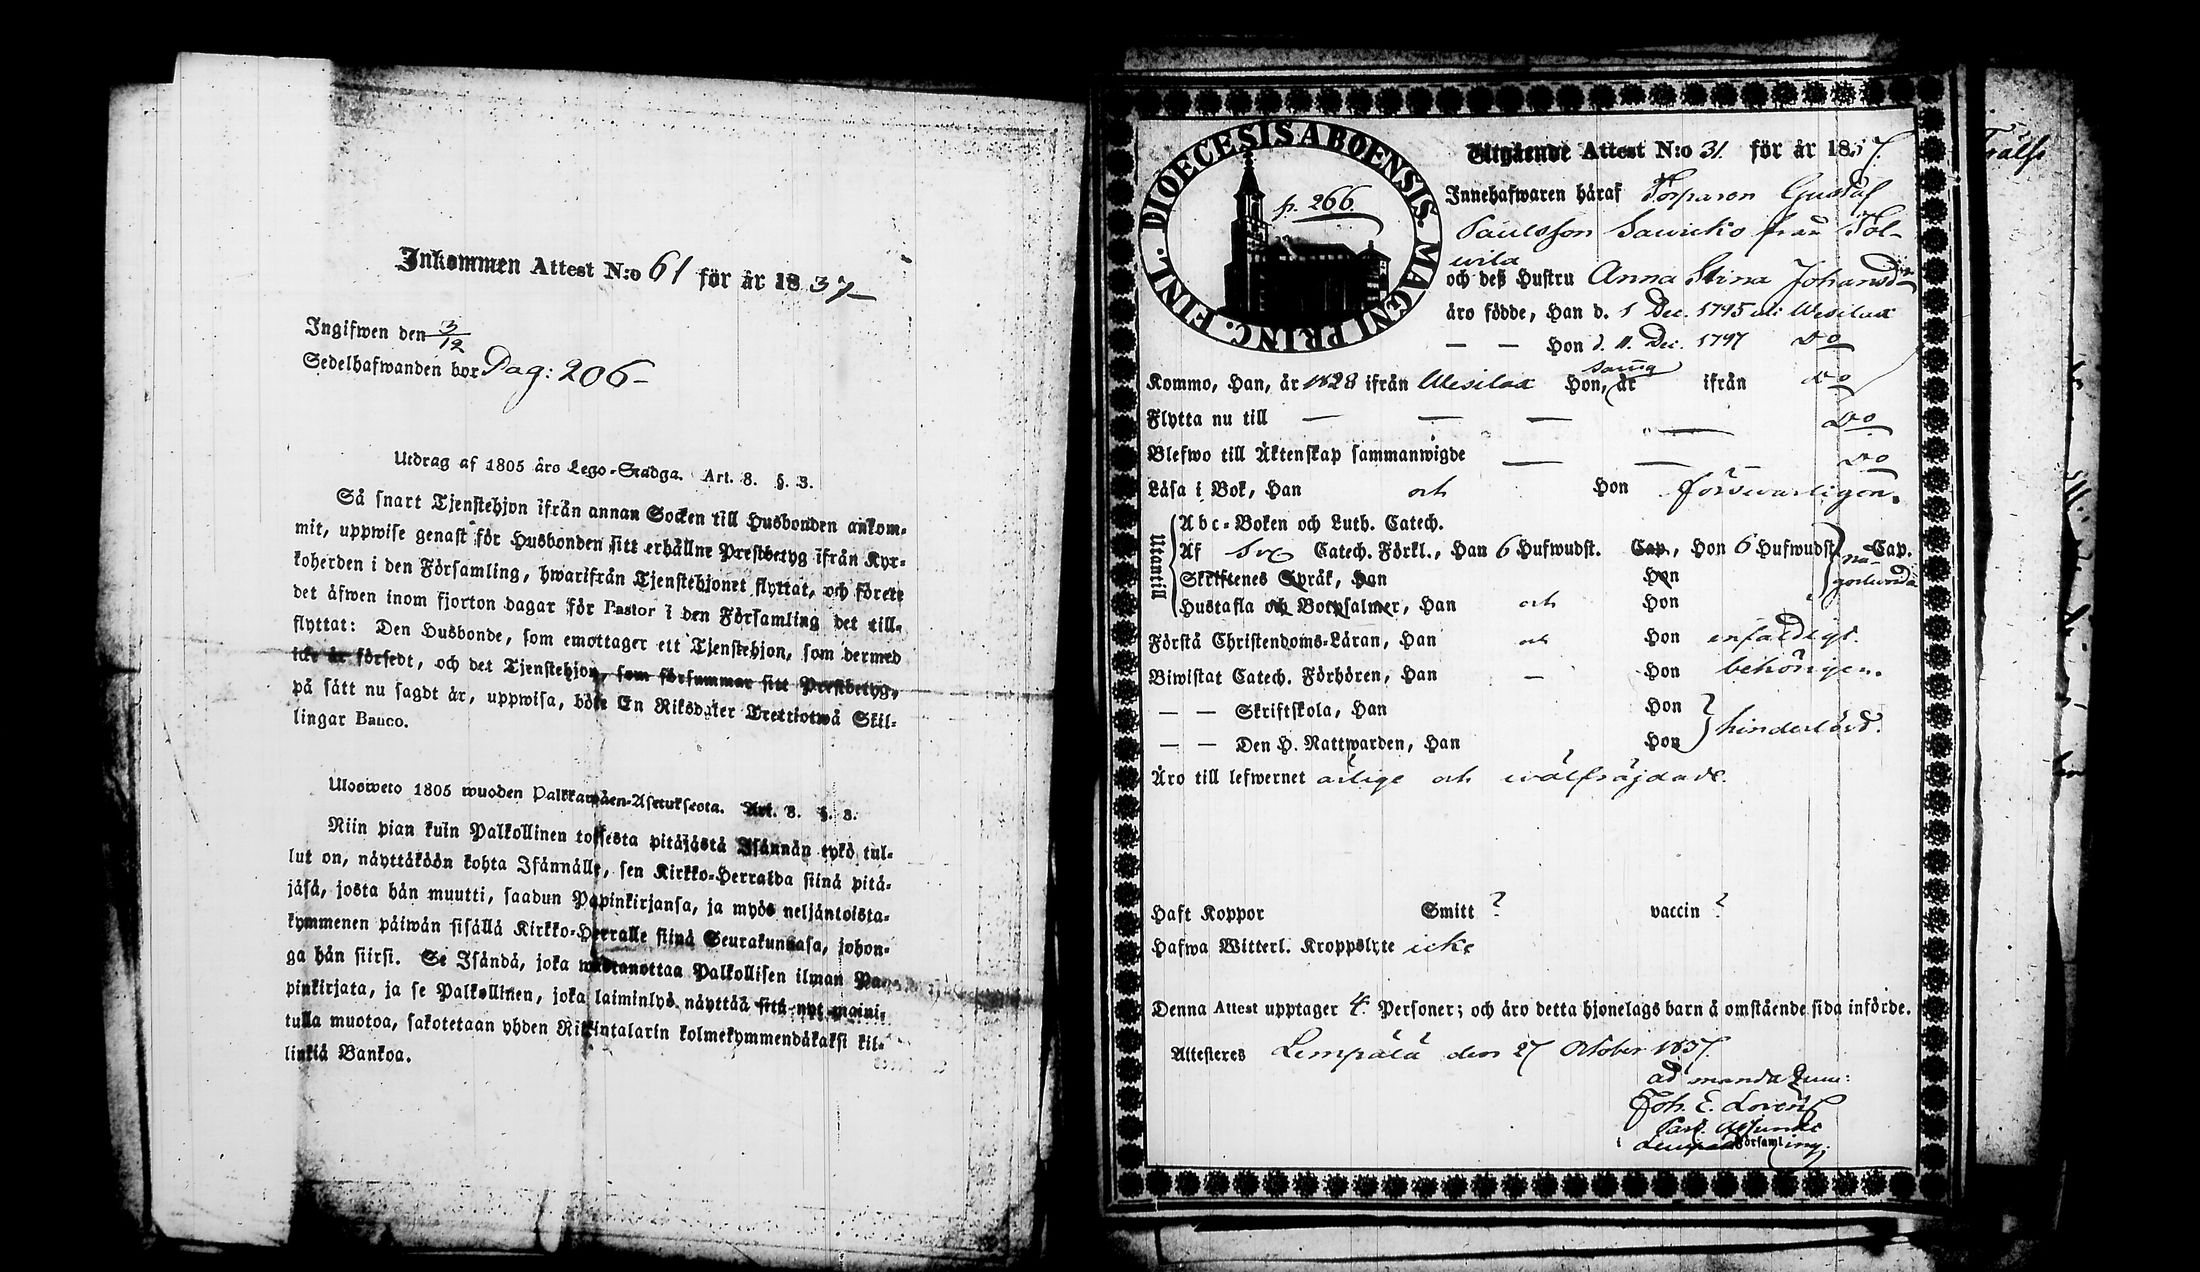 Inkommen Attest N:o 61 för år 1837
Ingifwen den 3/12
Sedelhafwanden bor Pag: 206
Utdrag af 1805 års Lego-Stadga. Art. 8. §. 3.
Så snart Tjenstehjon ifrån annan Socken till Husbonden ankom-
mit, uppwise genast för Husbonden sitt erhållne Prestbetyg ifrån Kyr-
koherden i den Församling, hwarifrån Tjenstehjonet flyttat, och förete
det äfwen inom fjorton dagar för Pastor i den Församling det till-
flyttat: Den Husbonde, som emottager ett Tjenstehjon, som dermed
icke är försedt, och det Tjenstehjon, som försummar sitt Prestbetyg,
på sätt nu sagdt är, uppwisa, böte En Riksdaler Trettiotwå Skil-
lingar Banco.
Ulosweto 1805 wuoden Palkkawäen-Asetuksesta. Art. 8. §. 3.
Niin pian kuin Palkollinen toisesta pitäjästä Isännän tykö tul-
lut on, näyttäköön kohta Isännälle, sen Kirkko-Herralda siinä pitä-
jäsä, josta hän muutti, saadun Papinkirjansa, ja myös neljäntoista-
kymmenen päiwän sisällä Kirkko-Herralle siinä Seurakunnasa, johon-
ga hän siirsi. Se Isändä, joka wastanottaa Palkollisen ilman Pa-
pinkirjata, ja se Palkollinen, joka laiminlyö näyttää sitä nyt maini-
tulla muotoa, sakotetaan yhden Rikintalarin kolmekymmendäkaksi kil-
linkiä Bankoa.
DIOECESIS ABOENSIS. MAGNI PRINC. FINL.
p. 266
Utgående Attest N:o 31. för år 1837.
Innehafwaren häraf Torparen Gustaf
Paulsson Sawicko från Tol-
wila
och deß Hustru Anna Stina Johansdr
äro födde, Han d. 1 Dec. 1795 i Wesilax
— — Hon d. 11. Dec. 1797 Do
Kommo, Han, år 1828 ifrån Wesilax Hon, samma år ifrån Do
Flytta nu till — — — — Do
Blefwo till Äktenskap sammanwigde — — Do
Läsa i Bok, Han och Hon försvarligen.
Utantill
Abc-Boken och Luth. Catech.
Af Sv Catech. Förkl., Han 6 Hufwudst. Cap., Hon 6 Hufwudst. Cap.
någorlunda
Skriftenes Språk, Han Hon
Hustafla och Botpsalmer, Han och Hon
Förstå Christendoms-Läran, Han och Hon enfaldigt.
Biwistat Catech. Förhören, Han — Hon behörigen.
— — Skriftskola, Han Hon
— — Den H. Nattwarden, Han Hon
hinderlösa.
Äro till lefwernet ärlige och wälfräjdade.
Haft Koppor Smitt ? vaccin ?
Hafwa Witterl. Kroppslyte icke
Denna Attest upptager 4. Personer; och äro detta hjonelags barn å omstående sida införde.
Attesteras Lempälä den 27 October 1837.
ad mandatum:
Joh. E. Lovén
Past. Adjunct
i Lempälä Församling.